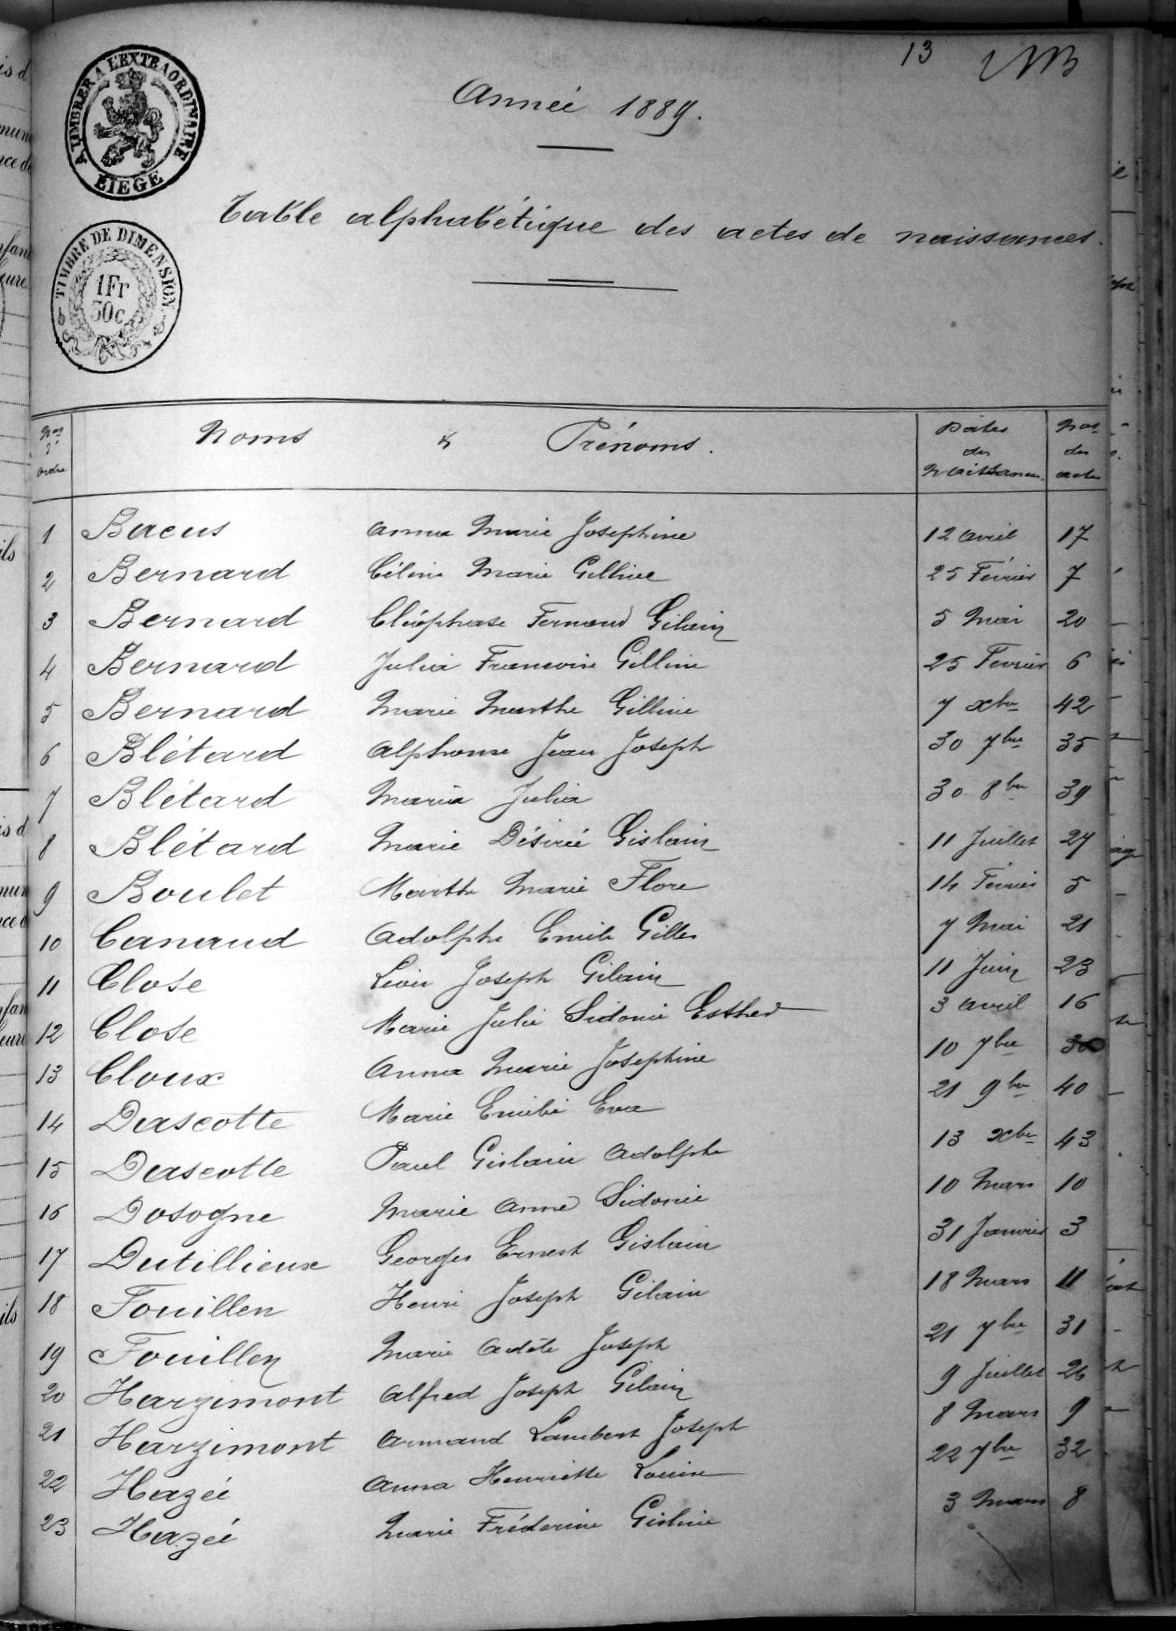 13
Année 1889.
A TIMBRER A L'EXTRAORDINAIRE
LIEGE
Table alphabétique des actes de naissances.
TIMBRE DE DIMENSION
1Fr
50c
Nos d'ordre Noms & Prénoms. Dates des Naissances Nos des actes
1 Bacus Anna Marie Josephine 12 avril 17
2 Bernard Céline Marie 25 Février 7
3 Bernard Cléophase Fernand Gilain 5 Mai 20
4 Bernard Julia Francoise Gilline 25 Fevrier 6
5 Bernard Marie Marthe Gilline 7 xbre 42
6 Blétard Alphonse Jean Joseph 30 7bre 35
7 Blétard Maria Julia 30 8bre 39
8 Blétard Marie Désirée Gislain 11 Juillet 27
9 Boulet Marthe Marie Flore 14 Fevrier 5
10 Canaud Adolphe Emile Gilles 7 Mai 21
11 Close Léon Joseph Gilain 11 Juin 23
12 Close Marie Julie Sidonie Esther 3 avril 16
13 Cloux Anna Marie Josephine 10 7bre 30
14 Dascotte Marie Emilie Eva 21 9bre 40
15 Dascotte Paul Gislain Adolphe 13 xbre 43
16 Dosogne Marie Anne Sidonie 10 Mars 10
17 Dutillieux Georges Ernest Gislain 31 Janvier 3
18 Fouillen Henri Joseph Gilain 18 Mars 11
19 Fouillen Marie Adèle Joseph 21 7bre 31
20 Harzimont Alfred Joseph Gilain 9 Juillet 26
21 Harzimont Armand Lambert Joseph 8 Mars 9
22 Hazée Anna Henriette Louise 22 7bre 32
23 Hazée Marie Fréderine Gisline 3 Mars 8